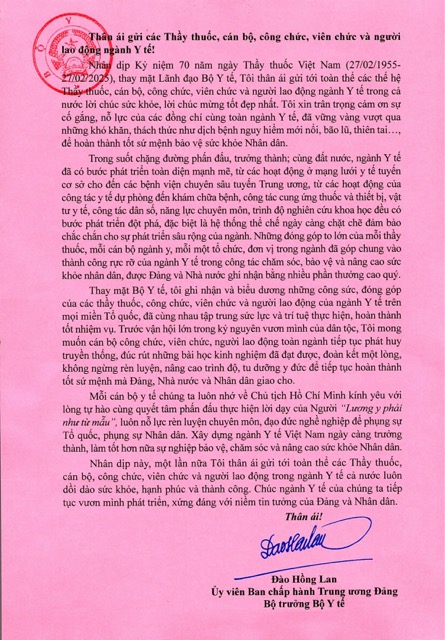 Thân ái gửi các Thầy thuốc, cán bộ, công chức, viên chức và người
lao động ngành Y tế!
Nhân dịp Kỷ niệm 70 năm ngày Thầy thuốc Việt Nam (27/02/1955-
27/02/2025), thay mặt Lãnh đạo Bộ Y tế, Tôi thân ái gửi tới toàn thể các thế hệ
Thầy thuốc, cán bộ, công chức, viên chức và người lao động ngành Y tế trong cả
nước lời chúc sức khỏe, lời chúc mừng tốt đẹp nhất. Tôi xin trân trọng cảm ơn sự
cố gắng, nỗ lực của các đồng chí cùng toàn ngành Y tế, đã vững vàng vượt qua
những khó khăn, thách thức như dịch bệnh nguy hiểm mới nổi, bão lũ, thiên tai…,
để hoàn thành tốt sứ mệnh bảo vệ sức khỏe Nhân dân.
Trong suốt chặng đường phấn đấu, trưởng thành; cùng đất nước, ngành Y tế
đã có bước phát triển toàn diện mạnh mẽ, từ các hoạt động ở mạng lưới y tế tuyến
cơ sở cho đến các bệnh viện chuyên sâu tuyến Trung ương, từ các hoạt động của
công tác y tế dự phòng đến khám chữa bệnh, công tác cung ứng thuốc và thiết bị, vật
tư y tế, công tác dân số, năng lực chuyên môn, trình độ nghiên cứu khoa học đều có
bước phát triển đột phá, đặc biệt là hệ thống thể chế ngày càng chặt chẽ đảm bảo
chắc chắn cho sự phát triển sâu rộng của ngành. Những đóng góp to lớn của mỗi thầy
thuốc, mỗi cán bộ ngành y, mỗi một tổ chức, đơn vị trong ngành đã góp chung vào
thành công rực rỡ của ngành Y tế trong công tác chăm sóc, bảo vệ và nâng cao sức
khỏe nhân dân, được Đảng và Nhà nước ghi nhận bằng nhiều phần thưởng cao quý.
Thay mặt Bộ Y tế, tôi ghi nhận và biểu dương những công sức, đóng góp
của các thầy thuốc, công chức, viên chức và người lao động của ngành Y tế trên
mọi miền Tổ quốc, đã cùng nhau tập trung sức lực và trí tuệ thực hiện, hoàn thành
tốt nhiệm vụ. Trước vận hội lớn trong kỷ nguyên vươn mình của dân tộc, Tôi mong
muốn cán bộ công chức, viên chức, người lao động toàn ngành tiếp tục phát huy
truyền thống, đúc rút những bài học kinh nghiệm đã đạt được, đoàn kết một lòng,
không ngừng rèn luyện, nâng cao trình độ, tu dưỡng y đức để tiếp tục hoàn thành
tốt sứ mệnh mà Đảng, Nhà nước và Nhân dân giao cho.
Mỗi cán bộ y tế chúng ta luôn nhớ về Chủ tịch Hồ Chí Minh kính yêu với
lòng tự hào cùng quyết tâm phấn đấu thực hiện lời dạy của Người “Lương y phải
như từ mẫu”, luôn nỗ lực rèn luyện chuyên môn, đạo đức nghề nghiệp để phụng sự
Tổ quốc, phụng sự Nhân dân. Xây dựng ngành Y tế Việt Nam ngày càng trưởng
thành, làm tốt hơn nữa sự nghiệp bảo vệ, chăm sóc và nâng cao sức khỏe Nhân dân.
Nhân dịp này, một lần nữa Tôi thân ái gửi tới toàn thể các Thầy thuốc,
cán bộ, công chức, viên chức và người lao động trong ngành Y tế cả nước luôn
dồi dào sức khỏe, hạnh phúc và thành công. Chúc ngành Y tế của chúng ta tiếp
tục vươn mình phát triển, xứng đáng với niềm tin tưởng của Đảng và Nhân dân.
Thân ái!
DaoHonLan
Đào Hồng Lan
Ủy viên Ban chấp hành Trung ương Đảng
Bộ trưởng Bộ Y tế